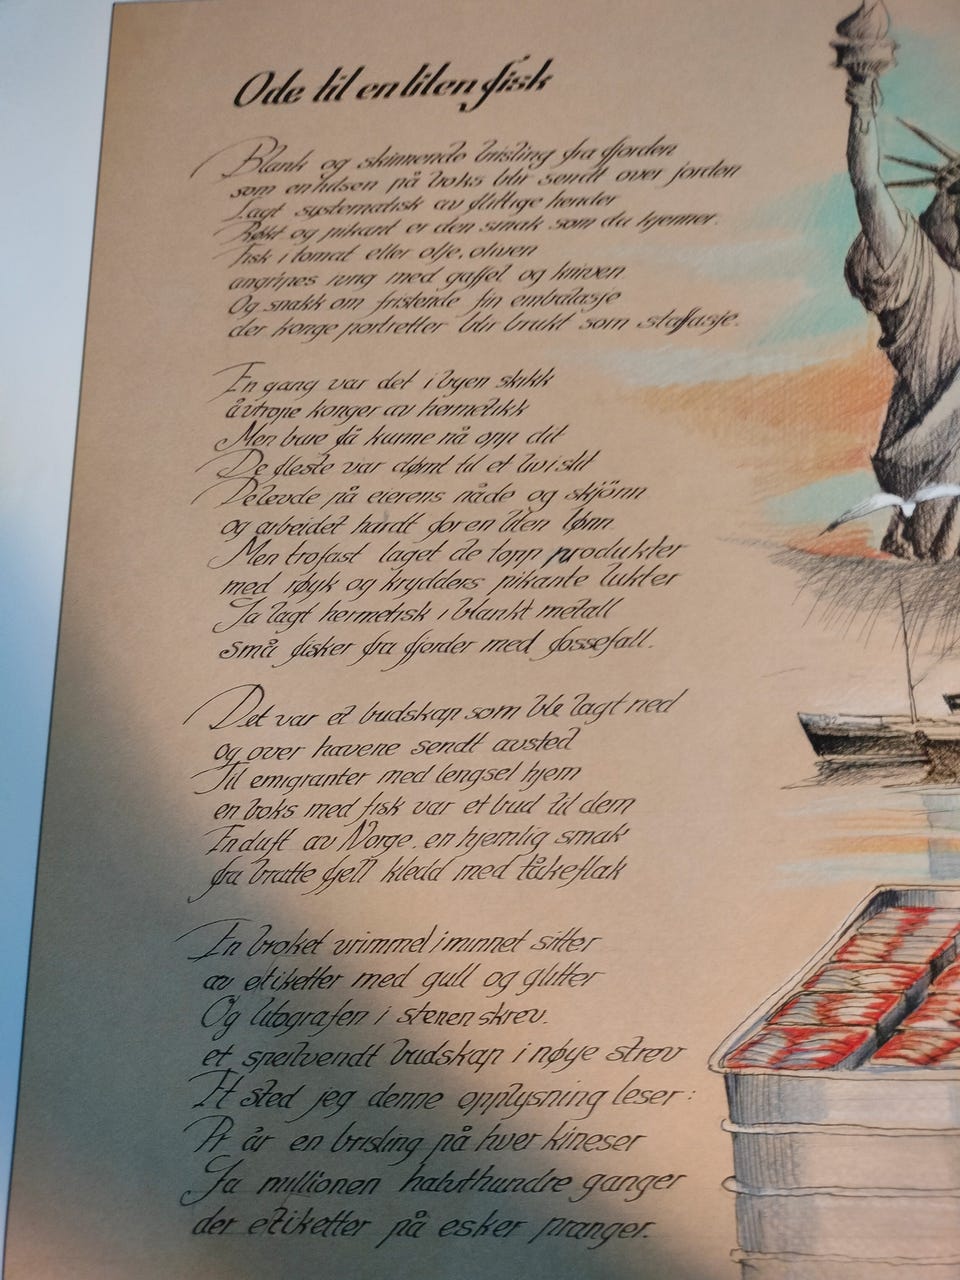 Ode til en liten fisk
Blank og skinnende brisling fra fjorden
som en hilsen på boks blir sendt over jorden
Lagt systematisk av flittige hender
Røkt og pikant er den smak som du kjenner.
Fisk i tomat eller olje, oliven
angripes rung med gaffel og kniven
Og snakk om fristende fin embalasje
der konge portretter blir brukt som staffasje.
En gang var det i byen skikk
å utrope konger av hermetikk
Men bare få kunne nå opp dit
De fleste var dømt til et liv i slit
De levde på eierens nåde og skjönn
og arbeidet hardt for en liten lønn.
Men trofast laget de topp produkter
med røyk og krydders pikante lukter
Ja lagt hermetisk i blankt metall
små fisker fra fjorder med fossefall.
Det var et budskap som ble lagt ned
og over havene sendt avsted
Til emigranter med lengsel hjem
en boks med fisk var et bud til dem
En duft av Norge, en hjemlig smak
fra bratte fjell kledd med tåkeflak
En broket vrimmel i minnet sitter
av etiketter med gull og glitter
Og litografen i stenen skrev.
et speilvendt budskap i nøye strev
Et sted jeg denne opplysning leser:
Pr år en brisling på hver kineser
Ja millionen halvthundre ganger
der etiketter på esker pranger.